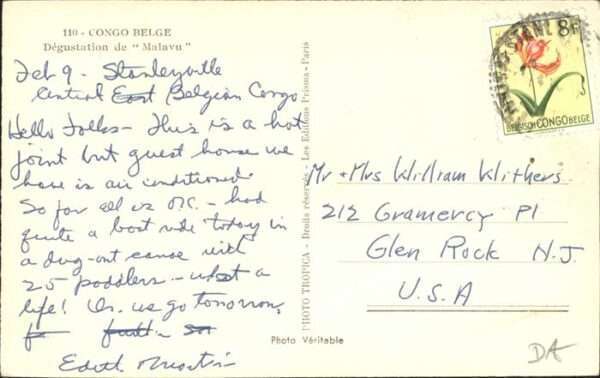 110 - CONGO BELGE
Dégustation de "Malavu"
Feb 9 - Stanleyville
Central East Belgian Congo
Hello Folks - This is a hot
joint but guest house we
have is air conditioned
So far all is O.K. - had
quite a boat ride today in
a dug-out canoe with
25 paddlers - what a
life! On we go tomorrow,
Edith
PHOTO TROPICA - Droits réservés - Les Editions Prisma - Paris
Photo Véritable
8F
STANL
BELGISCH CONGO BELGE
Mr + Mrs William Withers
212 Gramercy Pl
Glen Rock N.J.
U.S.A
DA